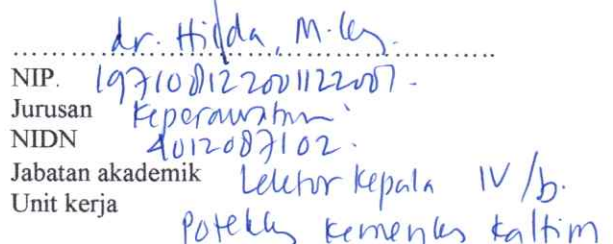 dr. Hilda, M.Kes.
NIP. 197108122001122001.
Jurusan Keperawatan
NIDN 4012087102.
Jabatan akademik Lektor Kepala IV/b.
Unit kerja Poltekkes Kemenkes Kaltim